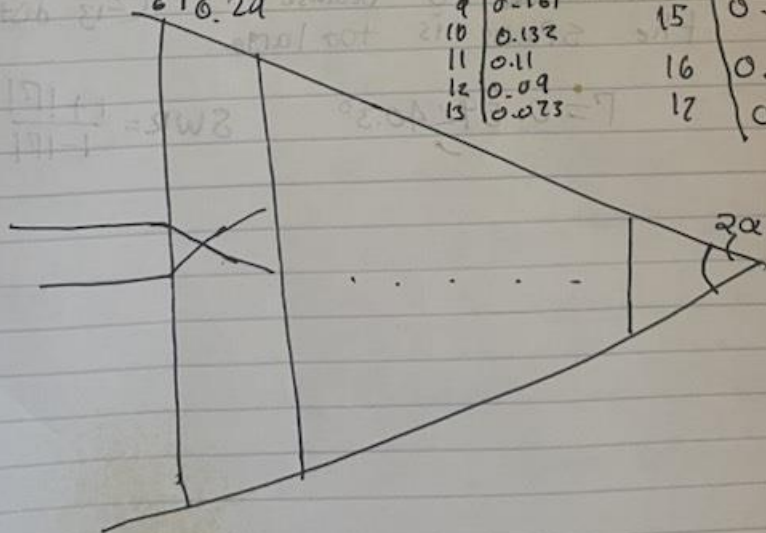 6 | 0.24
9 | 0.161
10 | 0.132
11 | 0.11
12 | 0.09
13 | 0.073
15 | 0.
16 | 0.
17 | 0
2α